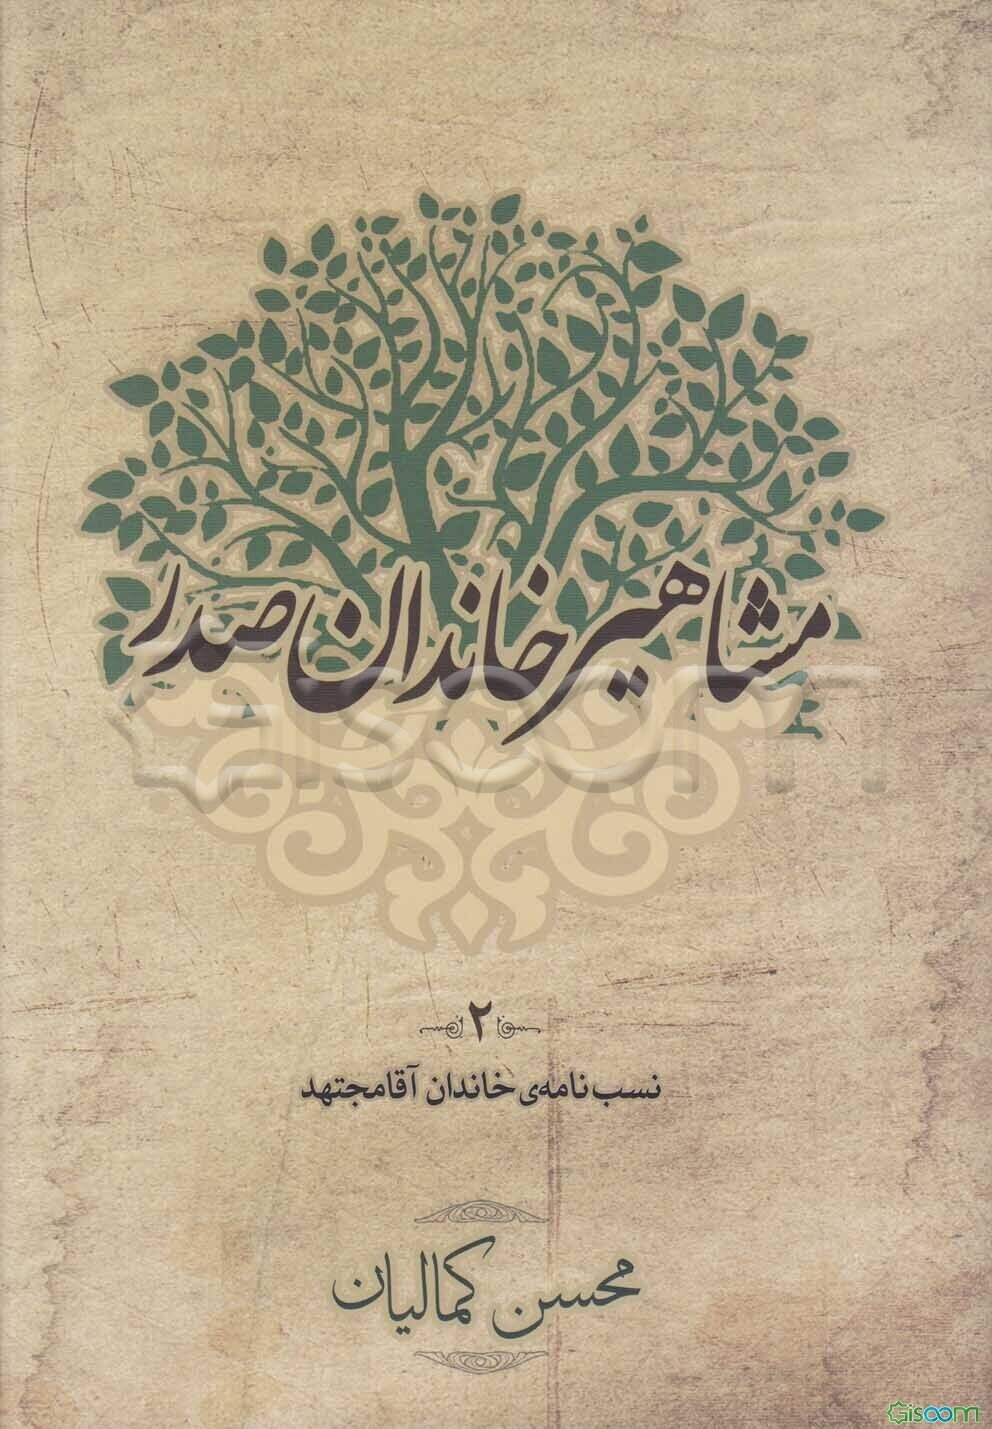 مشاهیر خاندان صدر
Gisoom
۲
نسب‌نامه‌ی خاندان آقامجتهد
محسن کمالیان
Gisoom